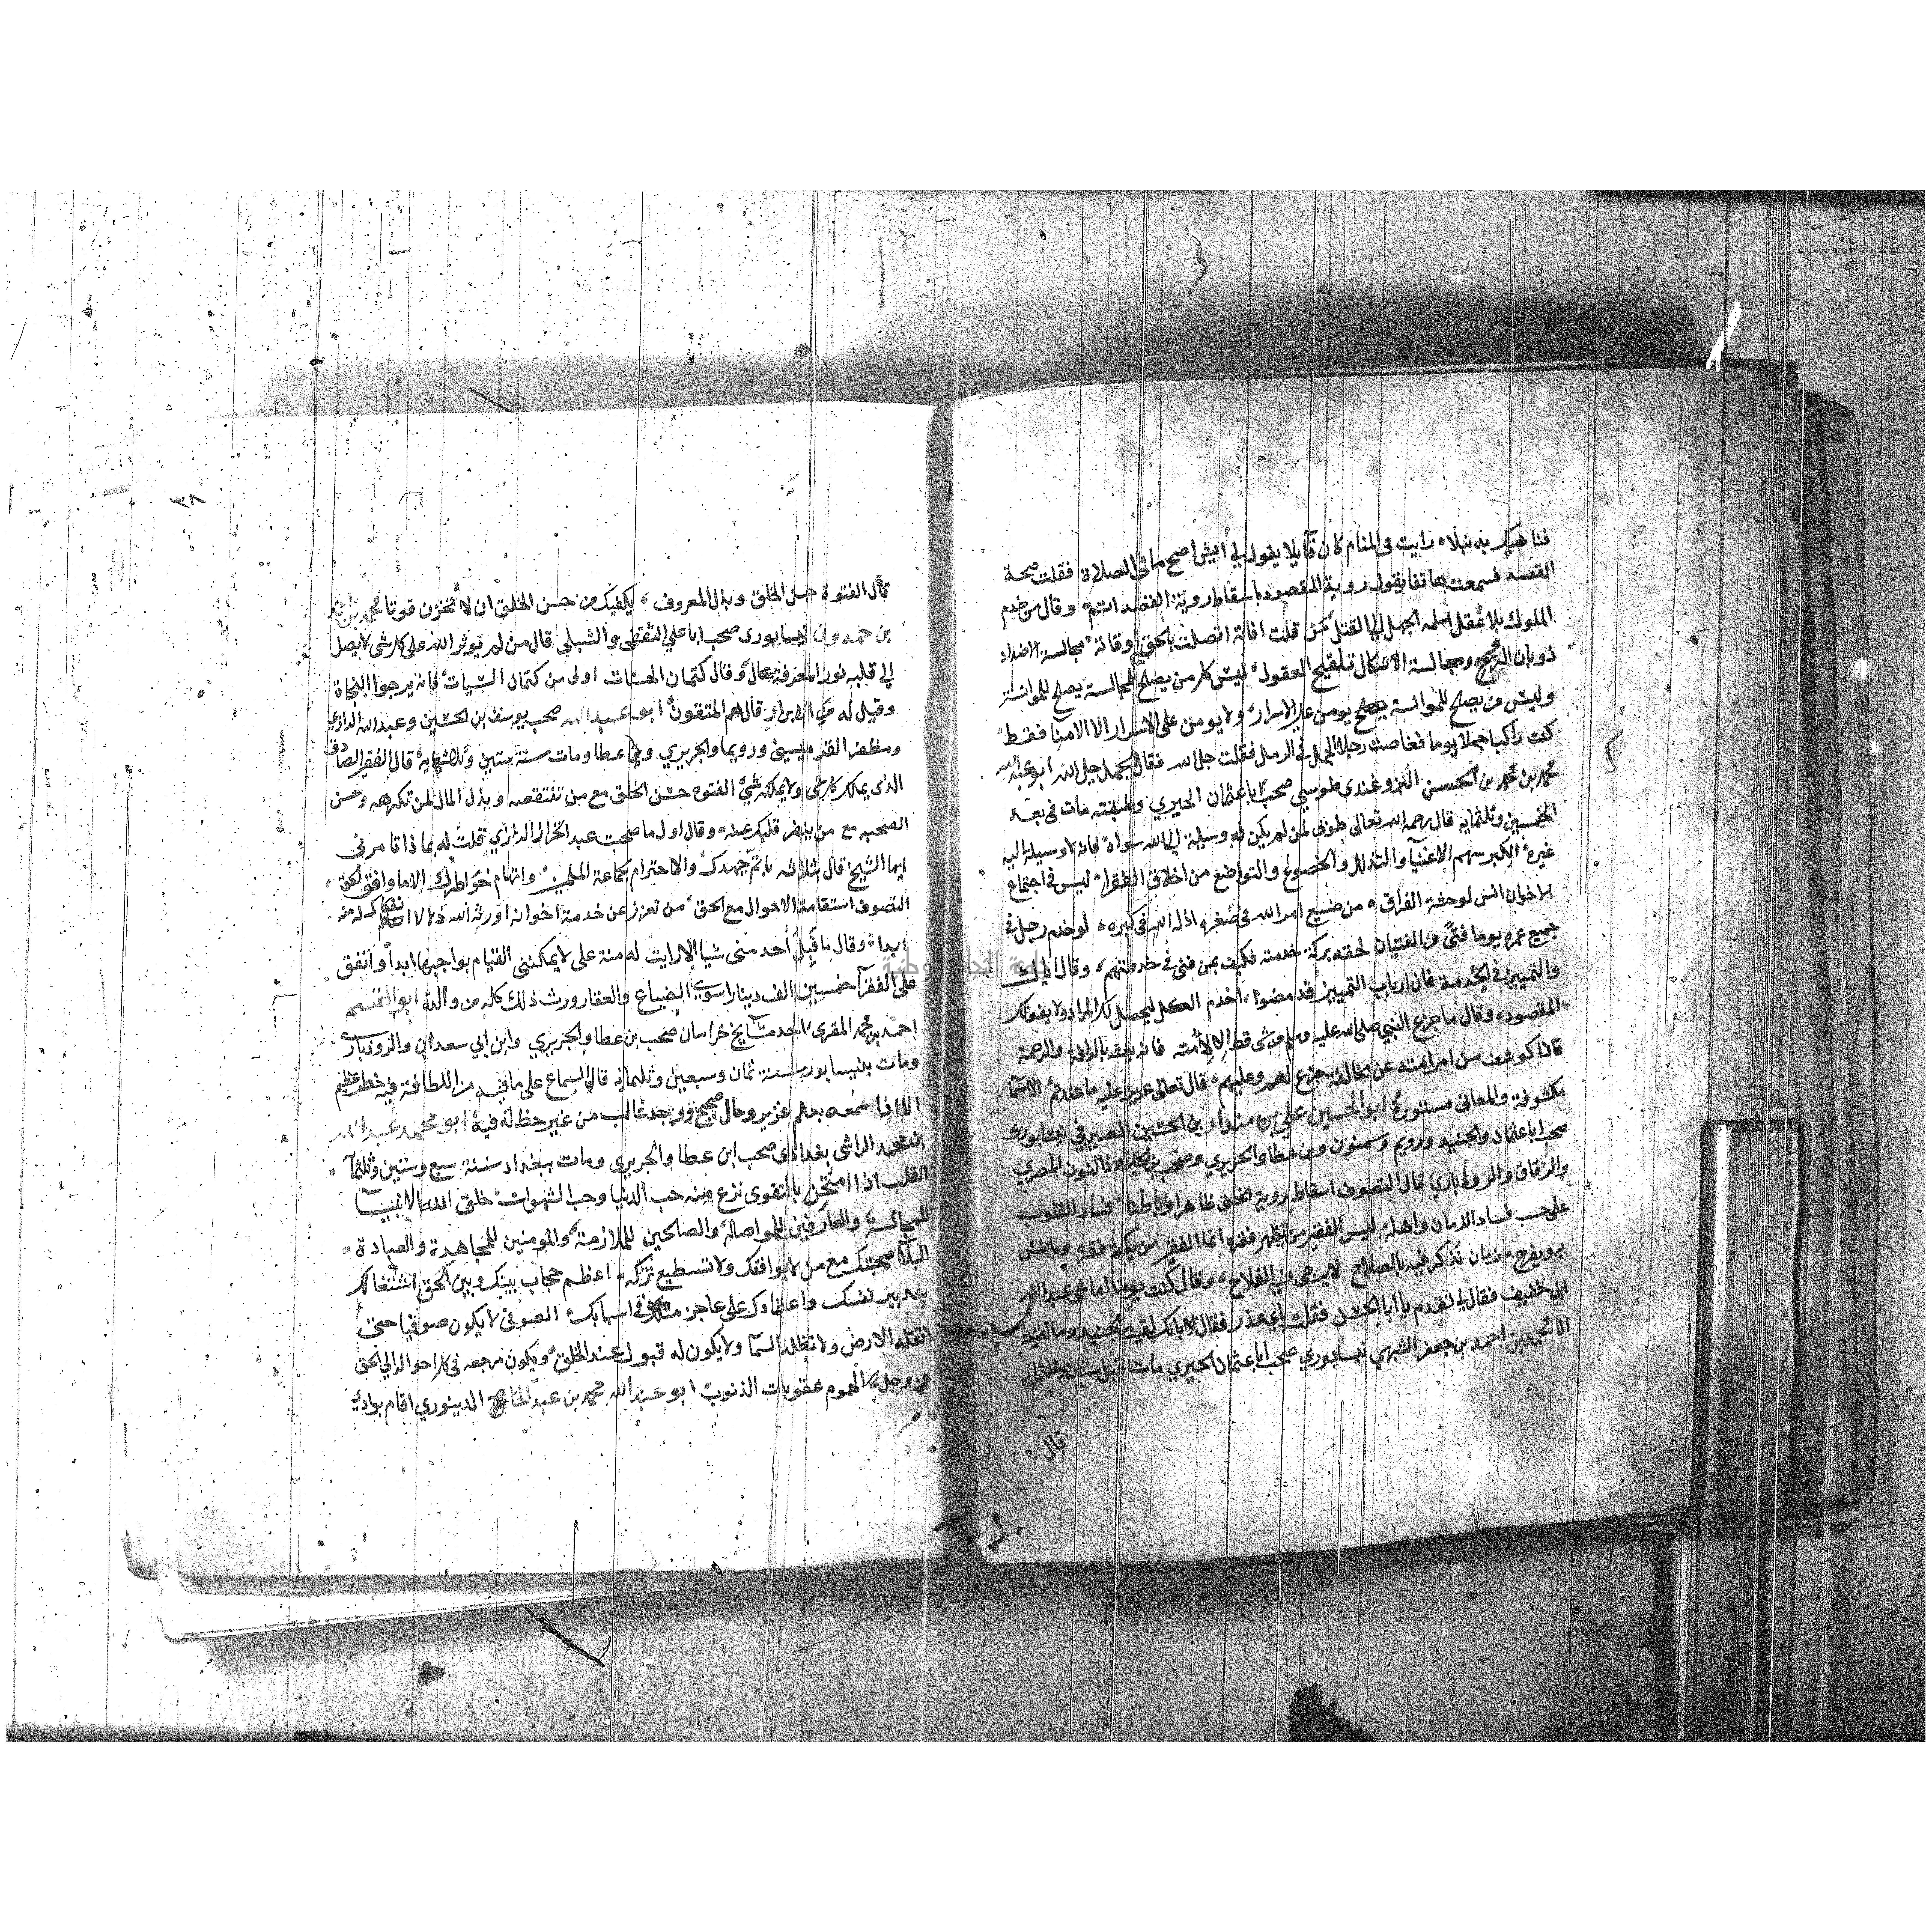 فناهيك به نبلا رايت في المنام كان قايلا يقول لي ايش اصح ما في الصلاة فقلت صحة
القصد فسمعت هاتفا يقول روية المقصود باسقاط روية القصد اتم وقال من خدم
الملوك بلا عقل اسلمه الجهل الي القتل من قلت افاته اتصلت بالحق اوقاته مجالسة الاضداد
ذوبان الروح ومجالسة الاشكال تلقيح العقول ليس كل من يصلح للمجالسة يصلح للموانسة
وليس من يصلح للموانسة يومن على الاسرار ولا يومن على الاسرار الا الامنا فقط
كنت راكبا جملا يوما فغاصت رجلا الجمل في الرمل فقلت جل الله فقال الجمل جل الله ابو عبد الله
محمد بن محمد بن الحسن التروغندي طوسي صحب ابا عثمان الحيري وطبقته مات في بعد
الخمسين وثلثمايه قال رحمه الله تعالى طوبى لمن لم يكن له وسيلة الي الله سواه فانه لا وسيلة اليه
غيره الكبر سهم الاغنيا والتذلل والخضوع والتواضع من اخلاق الفقرا ليس في اجتماع
الاخوان انس لوحشة الفراق من ضيع امر الله في صغره اذله الله في كبره لو خدم رجل في
جميع عمره يوما فتى من الفتيان لحقه بركة خدمته فكيف بمن فنى في خدمتهم وقال اياك
والتمييز في الخدمة فان ارباب التمييز قد مضوا اخدم الكل ليحصل لك المراد ولا يفوتك
المقصود وقال ما جزع النبي صلى الله عليه وسلم من شى قط الا لامته فانه بعثه بالرافة والرحمة
فاذا كوشف من امر امته عن مخالفة يجزع لهم وعليهم قال تعالى عزيز عليه ما عنتم الاسما
مكشوفة والمعاني مستورة ابو الحسين علي بن بندار بن الحسين الصيرفي نيسابوري
صحب ابا عثمان والجنيد ورويم وسمنون وبن عطا والجريري وصحب بن الجلا وذا النون المصري
والزقاق والروذباري قال التصوف اسقاط روية الخلق ظاهرا وباطنا فساد القلوب
على حسب فساد الزمان واهله ليس الفقير من يظهر فقره انما الفقير من يكتم فقره ويانس
به ويفرح زمان تذكر فيه بالصلاح لا يرجى فيه الفلاح وقال كنت يوما اماشي عبد الله
ابن خفيف فقال لي تقدم يا ابا الحسن فقلت باي عذر فقال بانك لقيت الجنيد وما لقيته
انا محمد بن احمد بن جعفر الشبهي نيسابوري صحب ابا عثمان الحيري مات قبل ستين وثلثمايه
قال
٣٨
قال الفتوة حسن الخلق وبذل المعروف يكفيك من حسن الخلق ان لا تحزن قوتا محمد بن احمد
بن حمدون نيسابوري صحب ابا علي الثقفي والشبلي قال من لم يوثر الله على كل شى لا يصل
الي قلبه نور المعرفة بحال وقال كتمان الحسنات اولى من كتمان السيات فانه يرجوا النجاة
وقيل له من الابرار قال هم المتقون ابو عبد الله صحب يوسف بن الحسين وعبد الله الرازي
ومظفر القرميسيني ورويما والجريري وبن عطا ومات سنة ستين وثلاثمايه قال الفقير الصادق
الذي يملك كل شى ولا يملكه شي الفتوه حسن الخلق مع من تنتقصه وبذل المال لمن تكرهه وحسن
الصحبه مع من ينفر قلبك عنه وقال اول ما صحبت عبد الله الخراز الرازي قلت له بماذا تامرني
ايها الشيخ قال بثلاثه باتم جهدك والاحترام لجماعة المسلمين واتهام خواطرك الا ما وافق الحق
التصوف استقامة الاحوال مع الحق من تعزز عن خدمة اخوانه اورثه الله ذلا لا انفكاك له منه
ابدا وقال ما قبل احد مني شيا الا رايت له منة على لا يمكنني القيام بواجبها ابدا وانفق
على الفقرا خمسين الف دينار اسوي الضياع والعقار ورث ذلك كله من والده ابو القسم
احمد بن محمد المقري احد مشايخ خراسان صحب بن عطا والجريري وابن ابي سعدان والروذباري
ومات بنيسابور سنة ثمان وسبعين وثلثمايه قال السماع على ما فيه من اللطافة فيه خطر عظيم
الا اذا سمعه بعلم عزيز وحال صحيح ووجد غالب من غير حظ له فيه ابو محمد عبد الله
بن محمد الراسى بغدادي صحب ابن عطا والجريري ومات ببغداد سنة سبع وستين وثلثمآ
القلب اذا امتحن بالتقوى نزع منه حب الدنيا وحب الشهوات خلق الله الانبيا
للمجالسة والعارفين للمواصلة والصالحين للملازمة والمومنين للمجاهدة والعبادة
البلا صحبتك مع من لا يوافقك ولا تستطيع تركه اعظم حجاب بينك وبين الحق اشتغالك
بتدبير نفسك واعتمادك على عاجز مثلك في اسبابك الصوفي لا يكون صوفيا حتى
لا تقله الارض ولا تظله السما ولا يكون له قبول عند الخلق ويكون مرجعه في كل احواله الي الحق
عز وجل الهموم عقوبات الذنوب ابو عبد الله محمد بن عبد الخالق الدينوري اقام بوادي